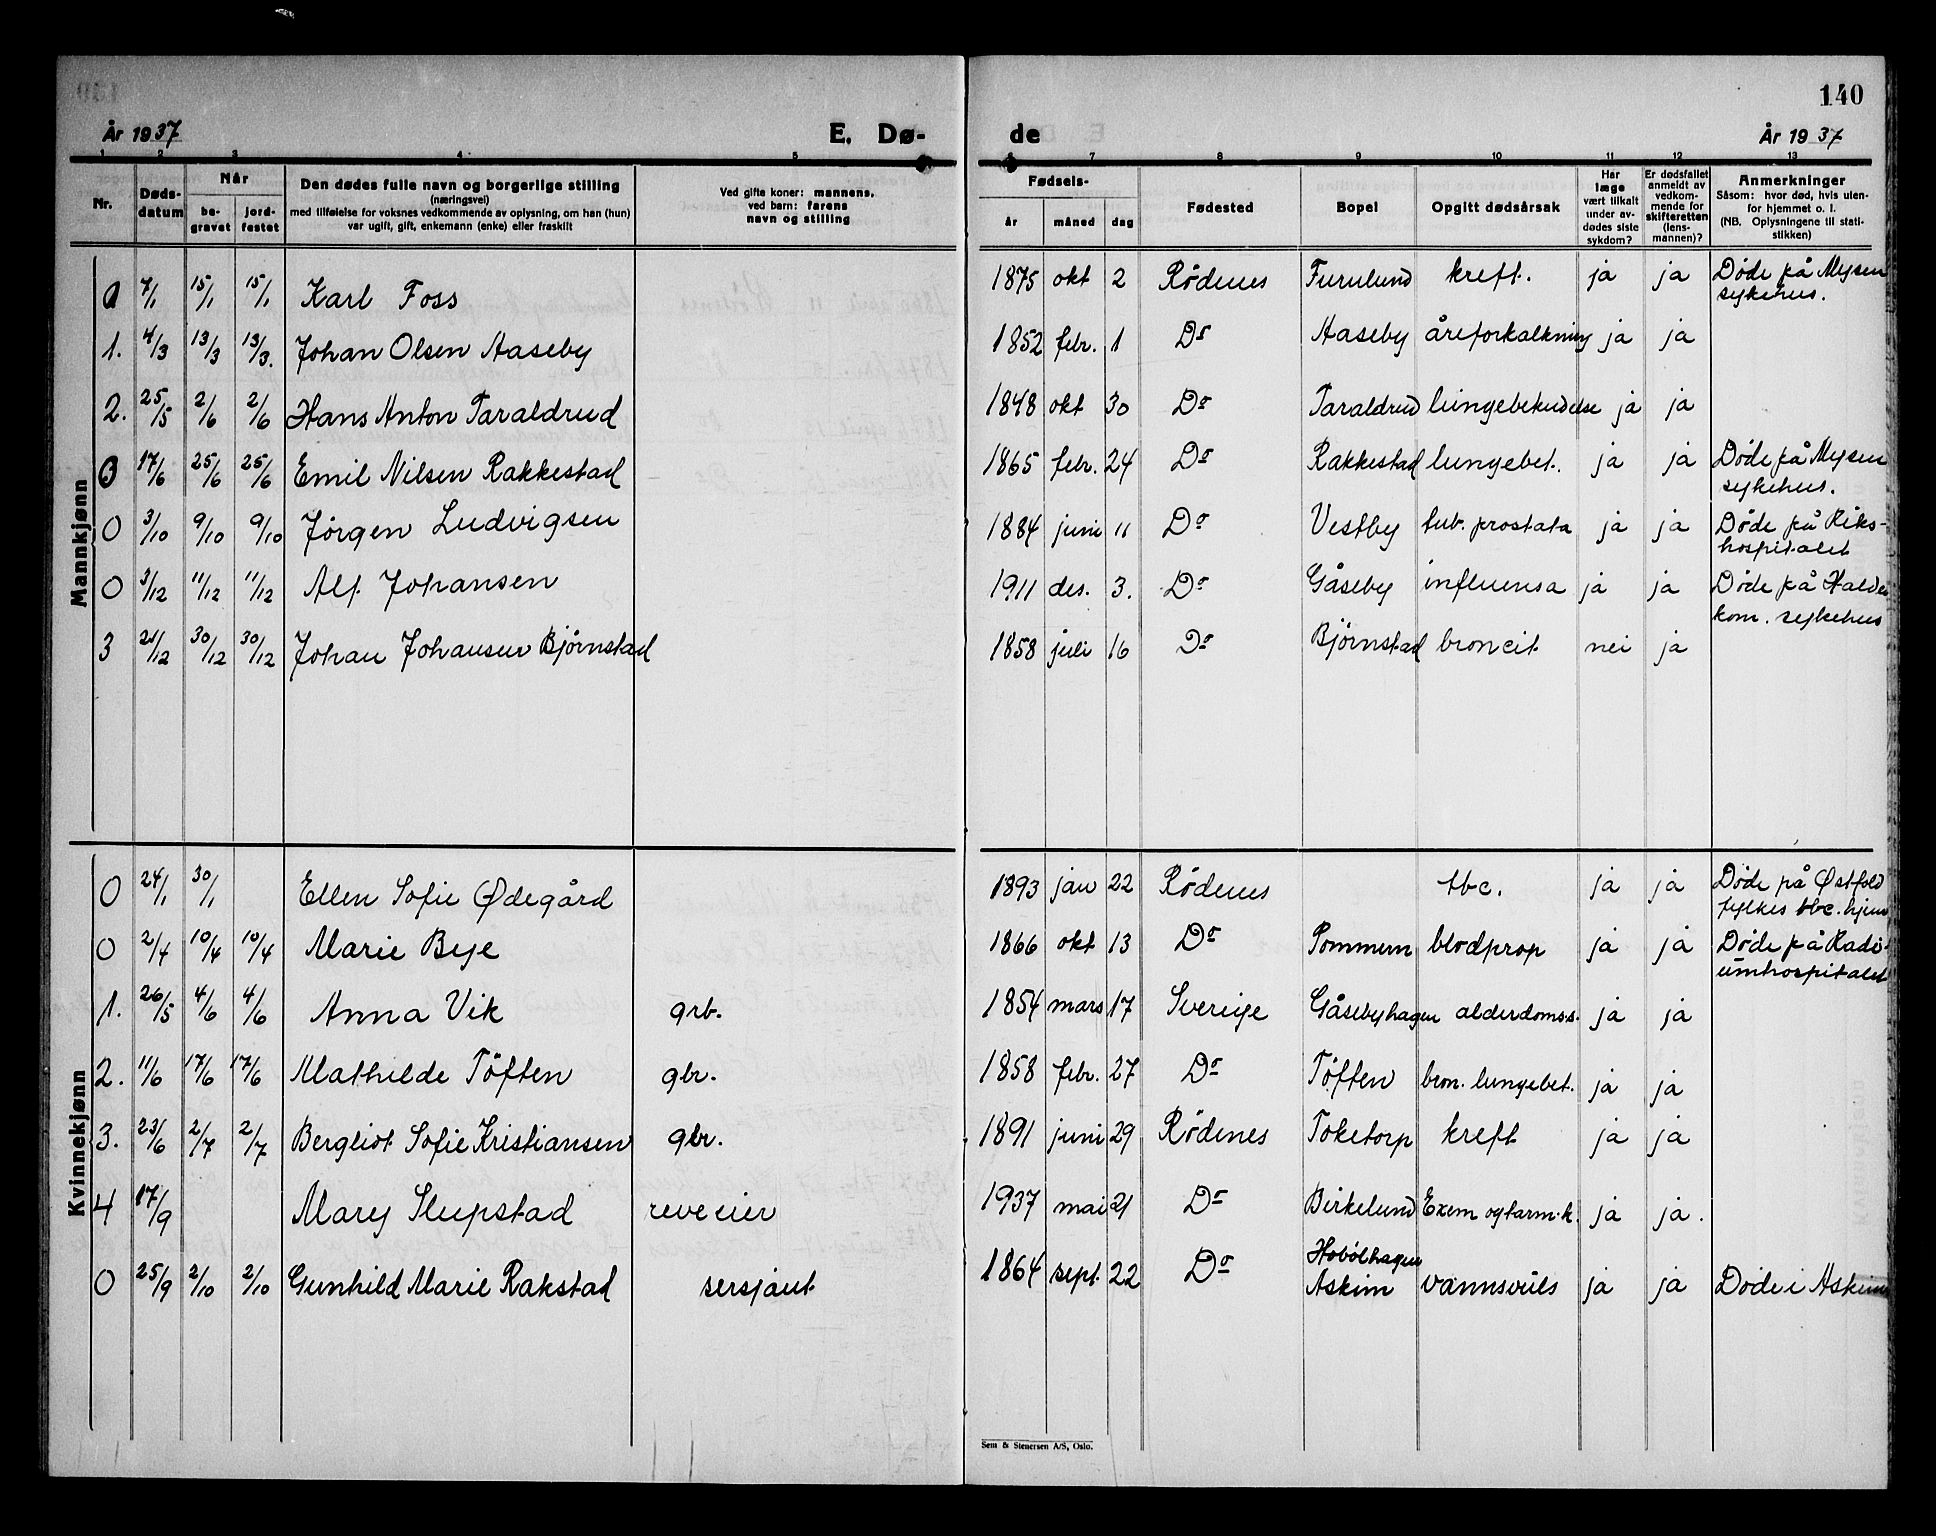 140
År 1937 E. Dø- de År 1937
1 2 3 4 5 6 7 8 9 10 11 12 13
Nr. Døds-datum Når be-gravet jord-festet Den dødes fulle navn og borgerlige stilling (næringsvei) med tilføielse for voksnes vedkommende av oplysning, om han (hun) var ugift, gift, enkemann (enke) eller fraskilt Ved gifte koner: mannens, ved barn: farens navn og stilling Fødsels- år måned dag Fødested Bopel Opgitt dødsårsak Har læge vært tilkalt under av-dødes siste sykdom? Er dødsfallet anmeldt av vedkom-mende for skifteretten (lens-mannen)? Anmerkninger Såsom: hvor død, hvis uten-for hjemmet o. l. (NB. Oplysningene til stati-stikken)
Mannkjønn
0 7/1 15/1 15/1 Karl Foss 1875 okt 2 Rødenes Furulund kreft. ja ja Døde på Mysen sykehus.
1. 4/3 13/3 13/3. Johan Olsen Aaseby 1852 febr. 1 Do Aaseby åreforkalkning ja ja
2. 25/5 2/6 2/6 Hans Anton Taraldrud 1848 okt 30 Do Taraldrud lungebetendelse ja ja
0 17/6 25/6 25/6 Emil Nilsen Rakkestad 1865 febr. 24 Do Rakkestad lungebet. ja ja Døde på Mysen sykehus.
0 3/10 9/10 9/10 Jørgen Ludvigsen 1884 juni 11 Do Vestby tub. prostata ja ja Døde på Riks-hospitalet
0 3/12 11/12 11/12 Alf Johansen 1911 des. 3. Do Gåseby influensa ja ja Døde på Halden kom. sykehus
3 21/12 30/12 30/12 Johan Johansen Bjørnstad 1858 juli 16 Do Bjørnstad broncit nei ja
Kvinnekjønn
0 24/1 30/1 Ellen Sofie Ødegård 1893 jan 22 Rødenes tbc. ja ja Døde på Østfold fylkes tbc. hjem
0 2/4 10/4 10/4 Marie Bye 1866 okt 13 Do Pommern blodprop ja ja Døde på Radi-umhospitalet
1. 26/5 4/6 4/6 Anna Vik grb. 1854 mars 17 Sverige Gåsebyhagen alderdoms.s. ja ja
2. 11/6 17/6 17/6 Mathilde Tøften gbr. 1858 febr. 27 Do Tøften bron. lungebet. ja ja
3. 23/6 2/7 2/7 Bergliot Sofie Kristiansen gbr. 1891 juni 29 Rødenes Toketorp kreft ja ja
4 17/9 Mary Slupstad reveeier 1937 mai 21 Do Birkelund Exem og tarm.k. ja ja.
0 25/9 2/10 2/10 Gunhild Marie Rakstad sersjant 1864 sept. 22 Do Hobølhagen Askim vannsvuls ja ja Døde i Askim
Sem & Stenersen A/S, Oslo.